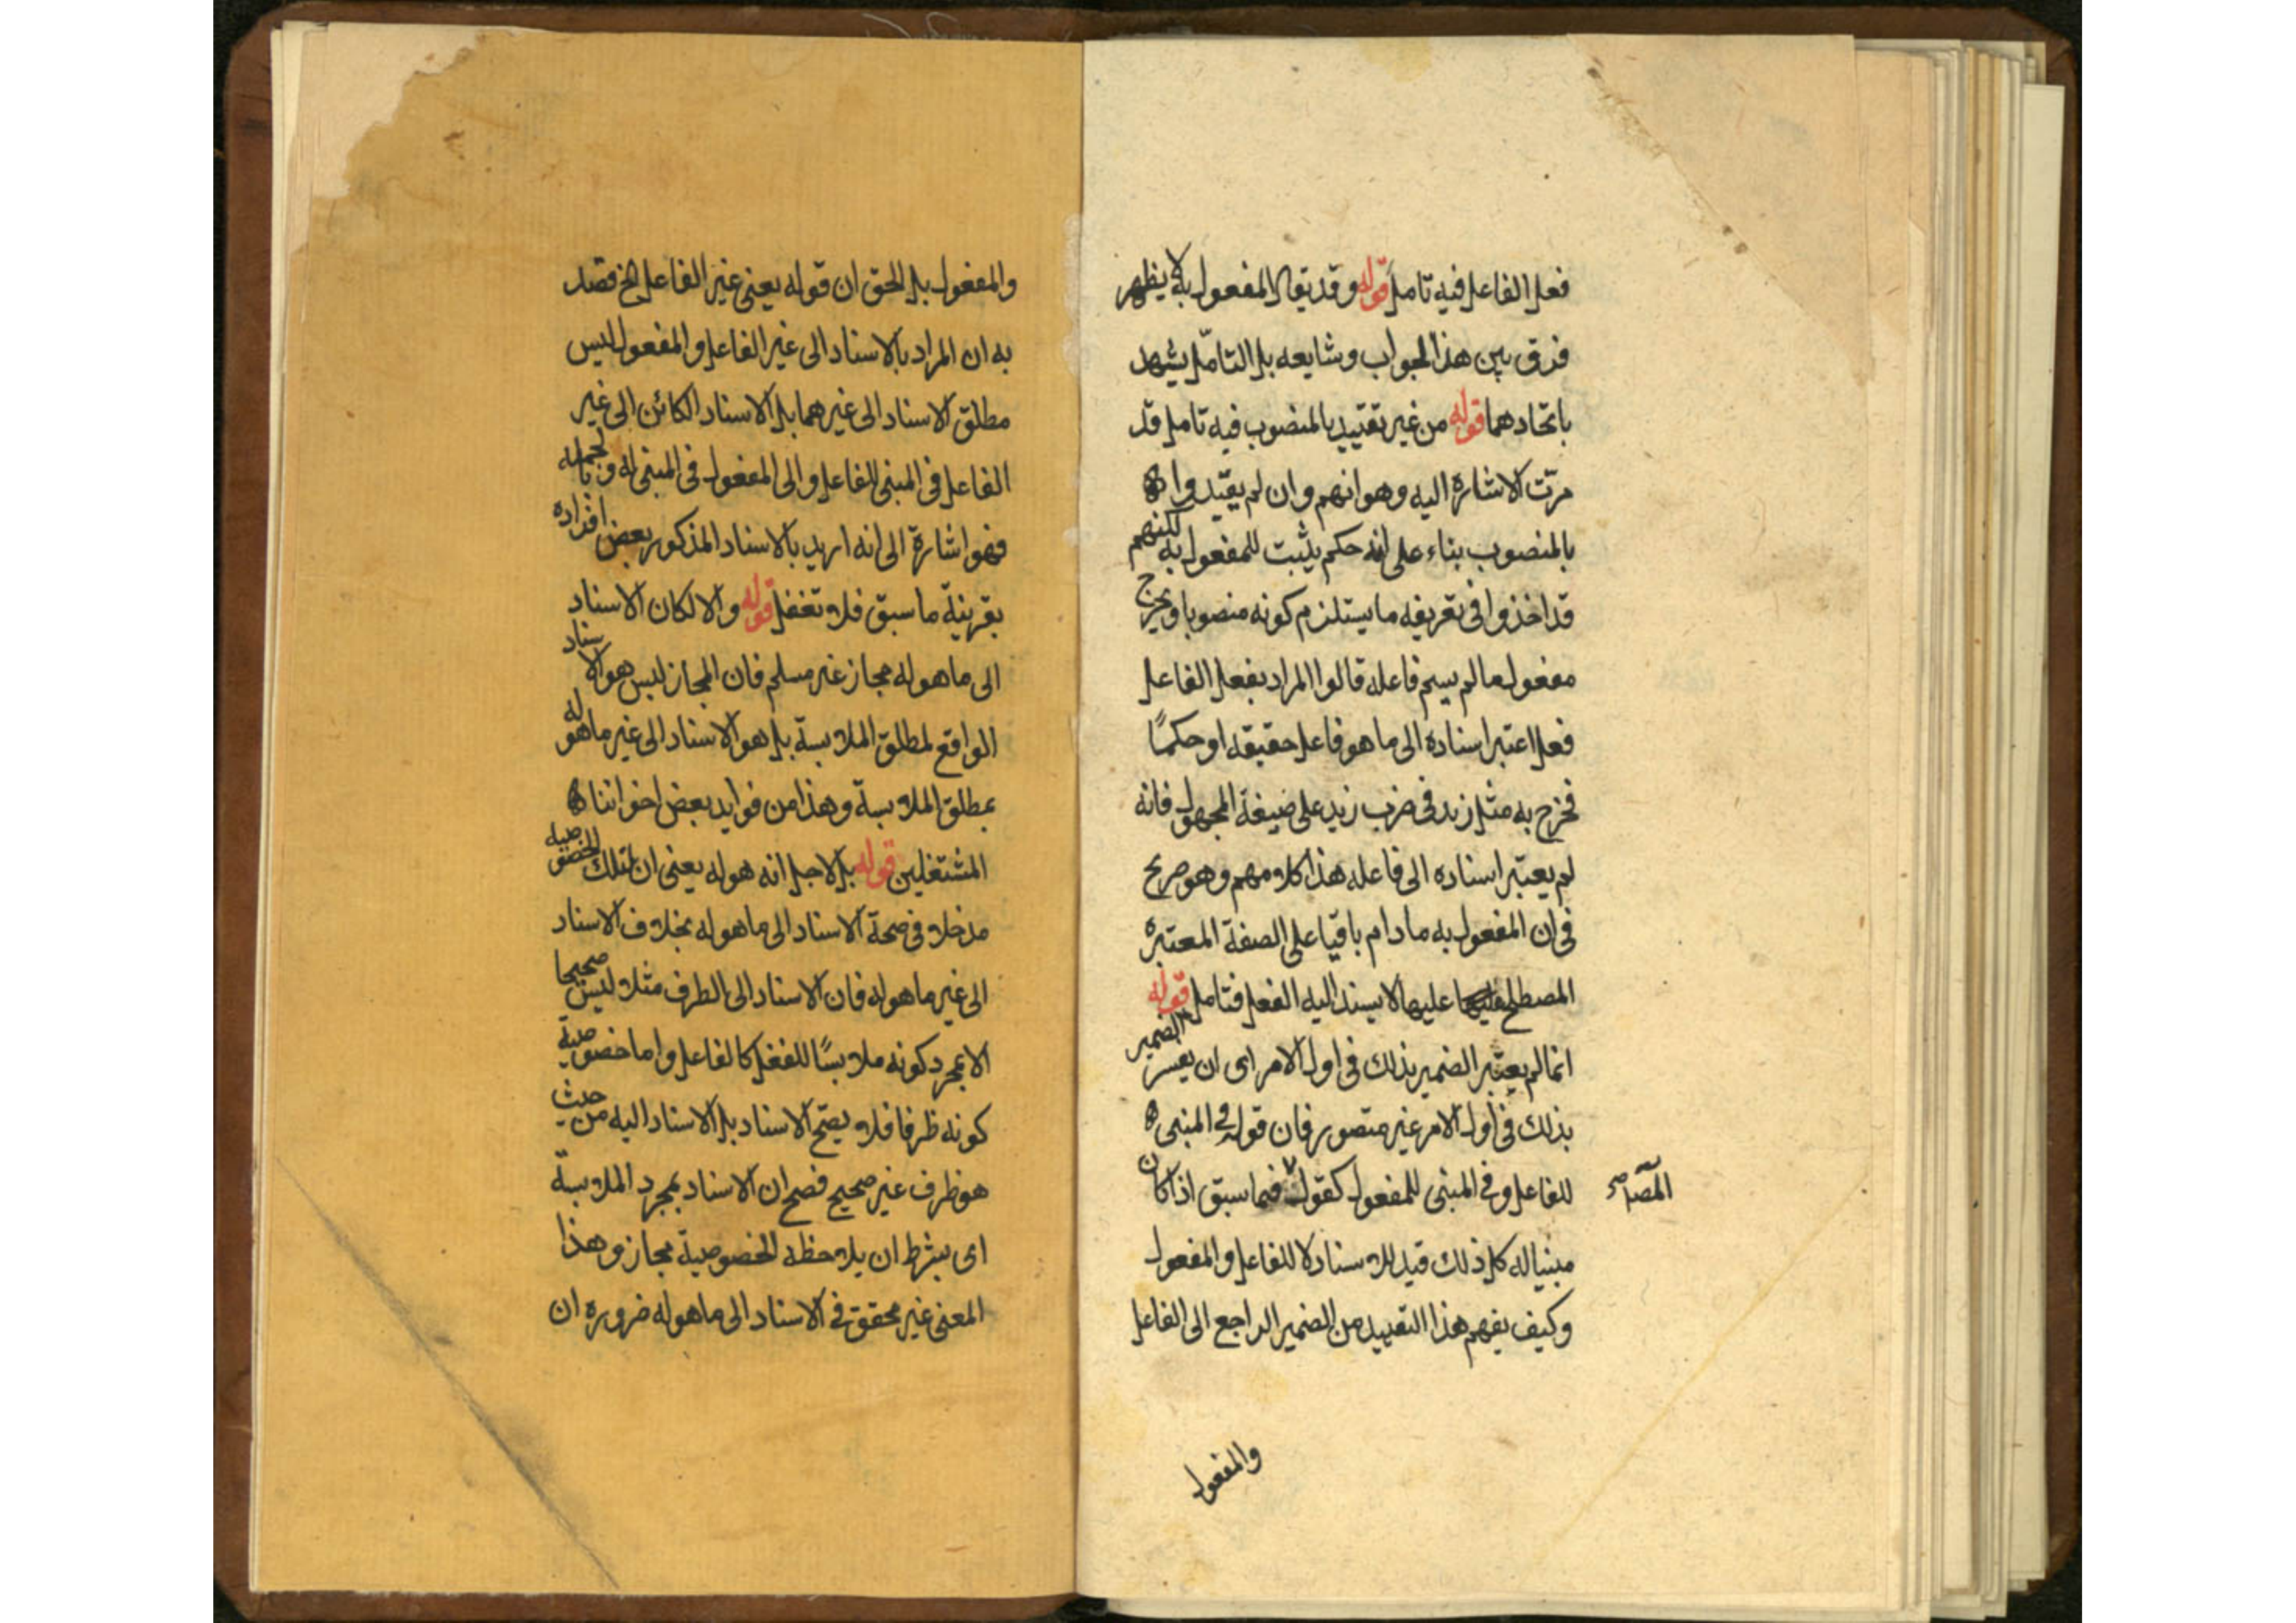 فعل الفاعل فيه تامل قوله وقد يقال المفعول به لا يظهر
فرق بين هذا الجواب وشايعه بل التامّل يشهد
باتحادهما قوله من غير تقييد بالمنصوب فيه تامل قد
مرّت الاشارة اليه وهو انهم وان لم يقيّدوا
بالمنصوب بناء على انه حكم يثبت للمفعول به لكنهم
قد اخذوا فى تعريفه ما يستلزم كونه منصوبا ويخرج
مفعول ما لم يسم فاعله قالوا المراد بفعل الفاعل
فعل اعتبر اسناده الى ما هو فاعل حقيقه او حكمًا
فخرج به مثل زيد فى ضرب زيد على صيغة المجهول فانه
لم يعتبر اسناده الى فاعله هذا كلامهم وهو صريح
فى ان المفعول به مادام باقيا على الصفة المعتبره
المصطلح عليها لا يسند اليه الفعل فتامل قوله
انما لم يعتبر الضمير بذلك فى اول الامر اى ان يفسر الضمير
بذلك فى اول الامر غير متصور فان قوله فى المبنى
للفاعل وفى المبنى للمفعول كقول فيما سبق اذا كان
المصـ
مبنيا له كل ذلك قيد للاسناد لا للفاعل والمفعول
وكيف يفهم هذا التقييد من الضمير الراجع الى الفاعل
والمفعول
والمفعول بل الحق ان قوله يعنى غير الفاعل الخ قصد
به ان المراد بالاسناد الى غير الفاعل والمفعول ليس
مطلق الاسناد الى غيرهما بل الاسناد الكائن الى غير
الفاعل فى المبنى للفاعل والى المفعول فى المبنى له وبالجمله
فهو اشارة الى انه اريد بالاسناد المذكور بعض افراده
بقرينة ما سبق فلا تغفل قوله والا لكان الاسناد
الى ما هو له مجاز غير مسلم فان المجاز ليس هو الاسناد
الواقع لمطلق الملابسة بل هو الاسناد الى غير ما هو له
بمطلق الملابسة وهذا من فوايد بعض اخواننا
المشتغلين قوله بل لاجل انه هو له يعنى ان لتلك الخصوصيه
مدخلا فى صحة الاسناد الى ما هو له بخلاف الاسناد
الى غير ما هو له فان الاسناد الى الظرف مثلا ليس صحيحا
الا بمجرد كونه ملابسًا للفعل كالفاعل واما خصوصية
كونه ظرفا فلا يصحّ الاسناد بل الاسناد اليه من حيث
هو ظرف غير صحيح فصح ان الاسناد بمجرد الملابسة
اى بشرط ان يلاحظه الخصوصية مجاز وهذا
المعنى غير محقق فى الاسناد الى ما هو له ضروره ان